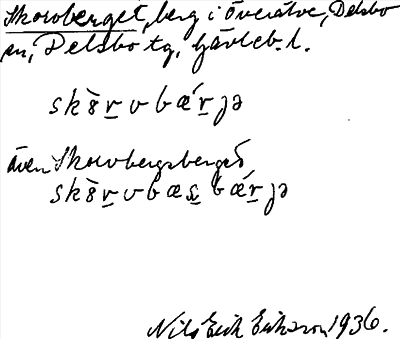 Skorvberget, berg i Överälve, Delsbo
sn, Delsbo tg, Gävleb. l.
skö̀r̲vbǽr̲jə
även Skorvbergsberget
skö̀r̲vbæs̲bǽr̲jə
Nils Erik Erikson 1936.